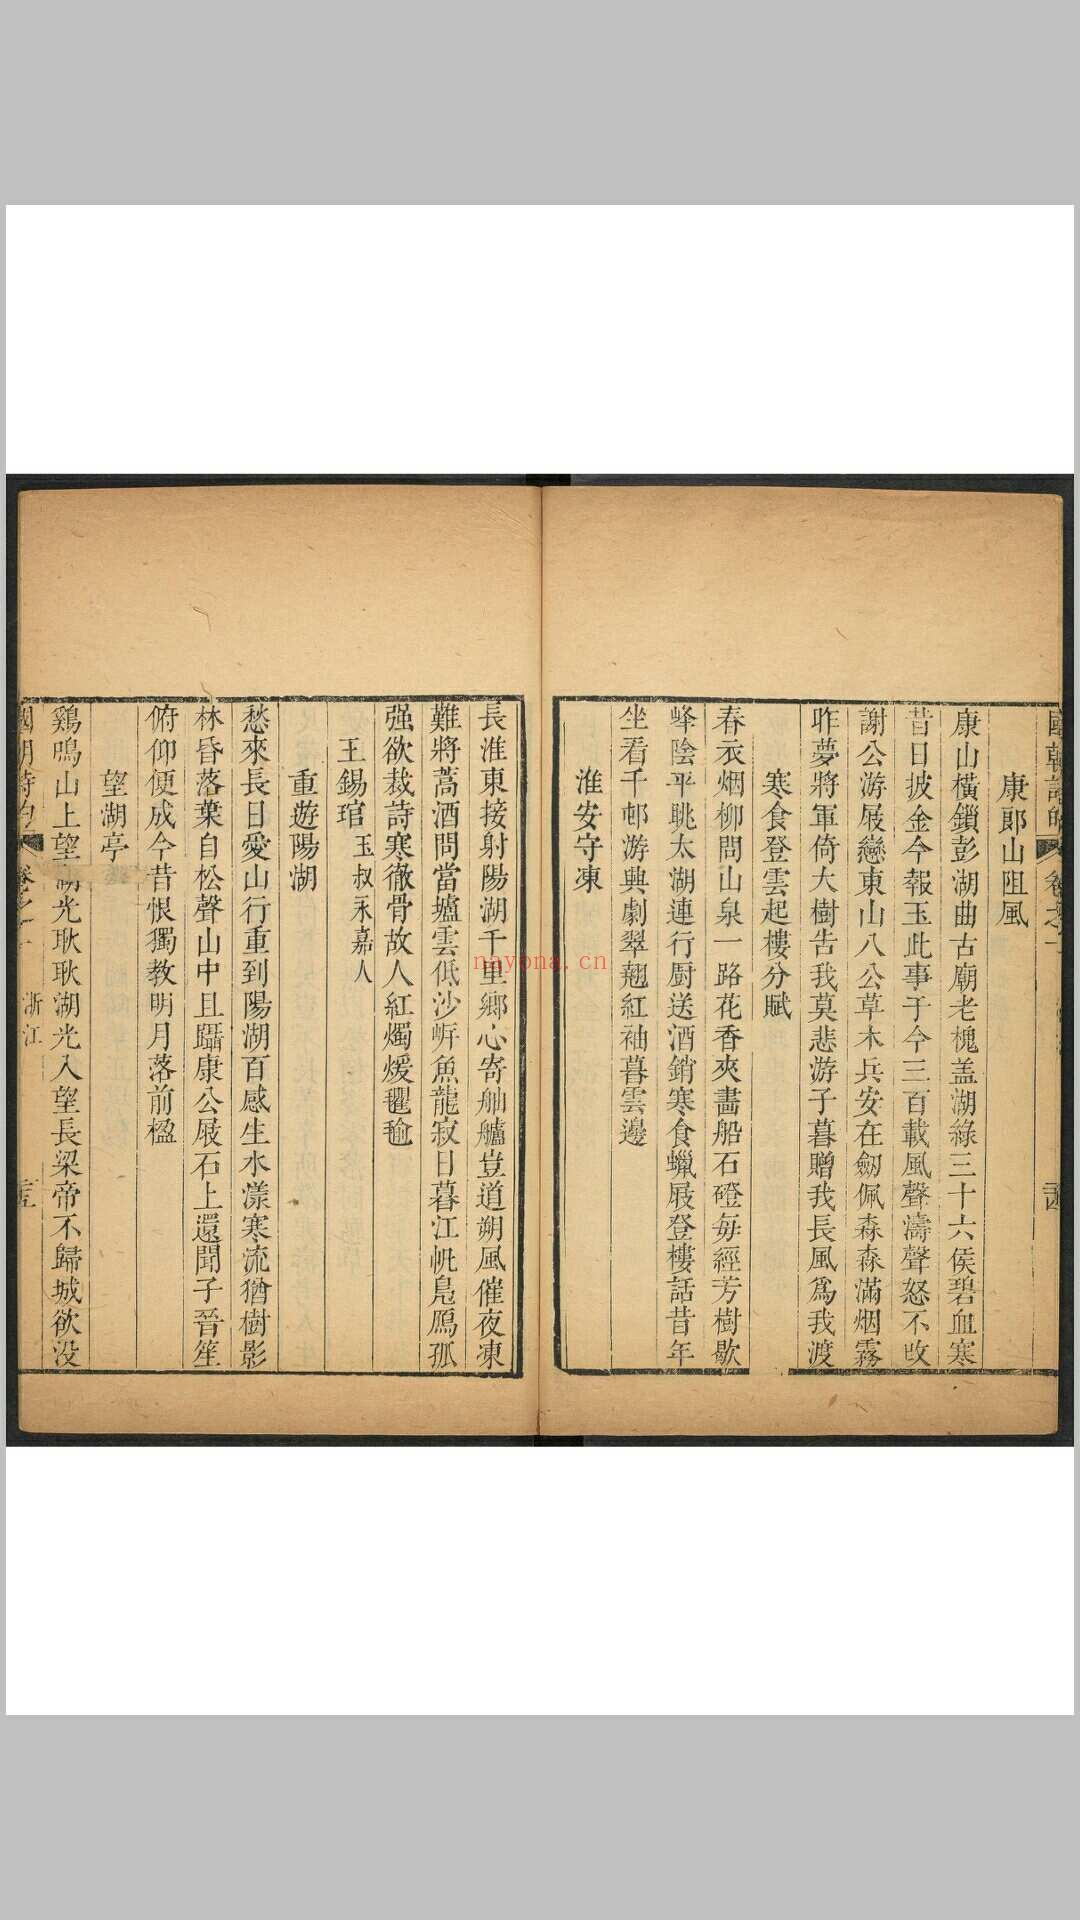 康郎山阻風
康山橫鎖彭湖曲古廟老槐盖湖綠三十六侯碧血寒
昔日披金今報玉此事于今三百載風聲濤聲怒不改
謝公游屐戀東山八公草木兵安在劒佩森森滿烟霧
昨夢將軍倚大樹告我莫悲游子暮贈我長風爲我渡
寒食登雲起樓分賦
春衣烟柳問山泉一路花香夾畵船石磴每經芳樹歇
峰陰平眺太湖連行厨送酒銷寒食蠟屐登樓話昔年
坐看千邨游興劇翠翹紅袖暮雲邊
淮安守凍
長淮東接射陽湖千里鄉心寄舳艫豈道朔風催夜凍
難將蒿酒問當壚雲低沙㟁魚龍寂日暮江帆鳧鴈孤
强欲裁詩寒徹骨故人紅燭煖氍毹
王錫琯 玉叔永嘉人
重遊陽湖
愁來長日愛山行重到陽湖百感生水漾寒流猶樹影
林昏落葉自松聲山中且躡康公屐石上還聞子晉笙
俯仰便成今昔恨獨教明月落前楹
望湖亭
鷄鳴山上望湖光耿耿湖光入望長梁帝不歸城欲没
卷之一 浙江
nayona.cn